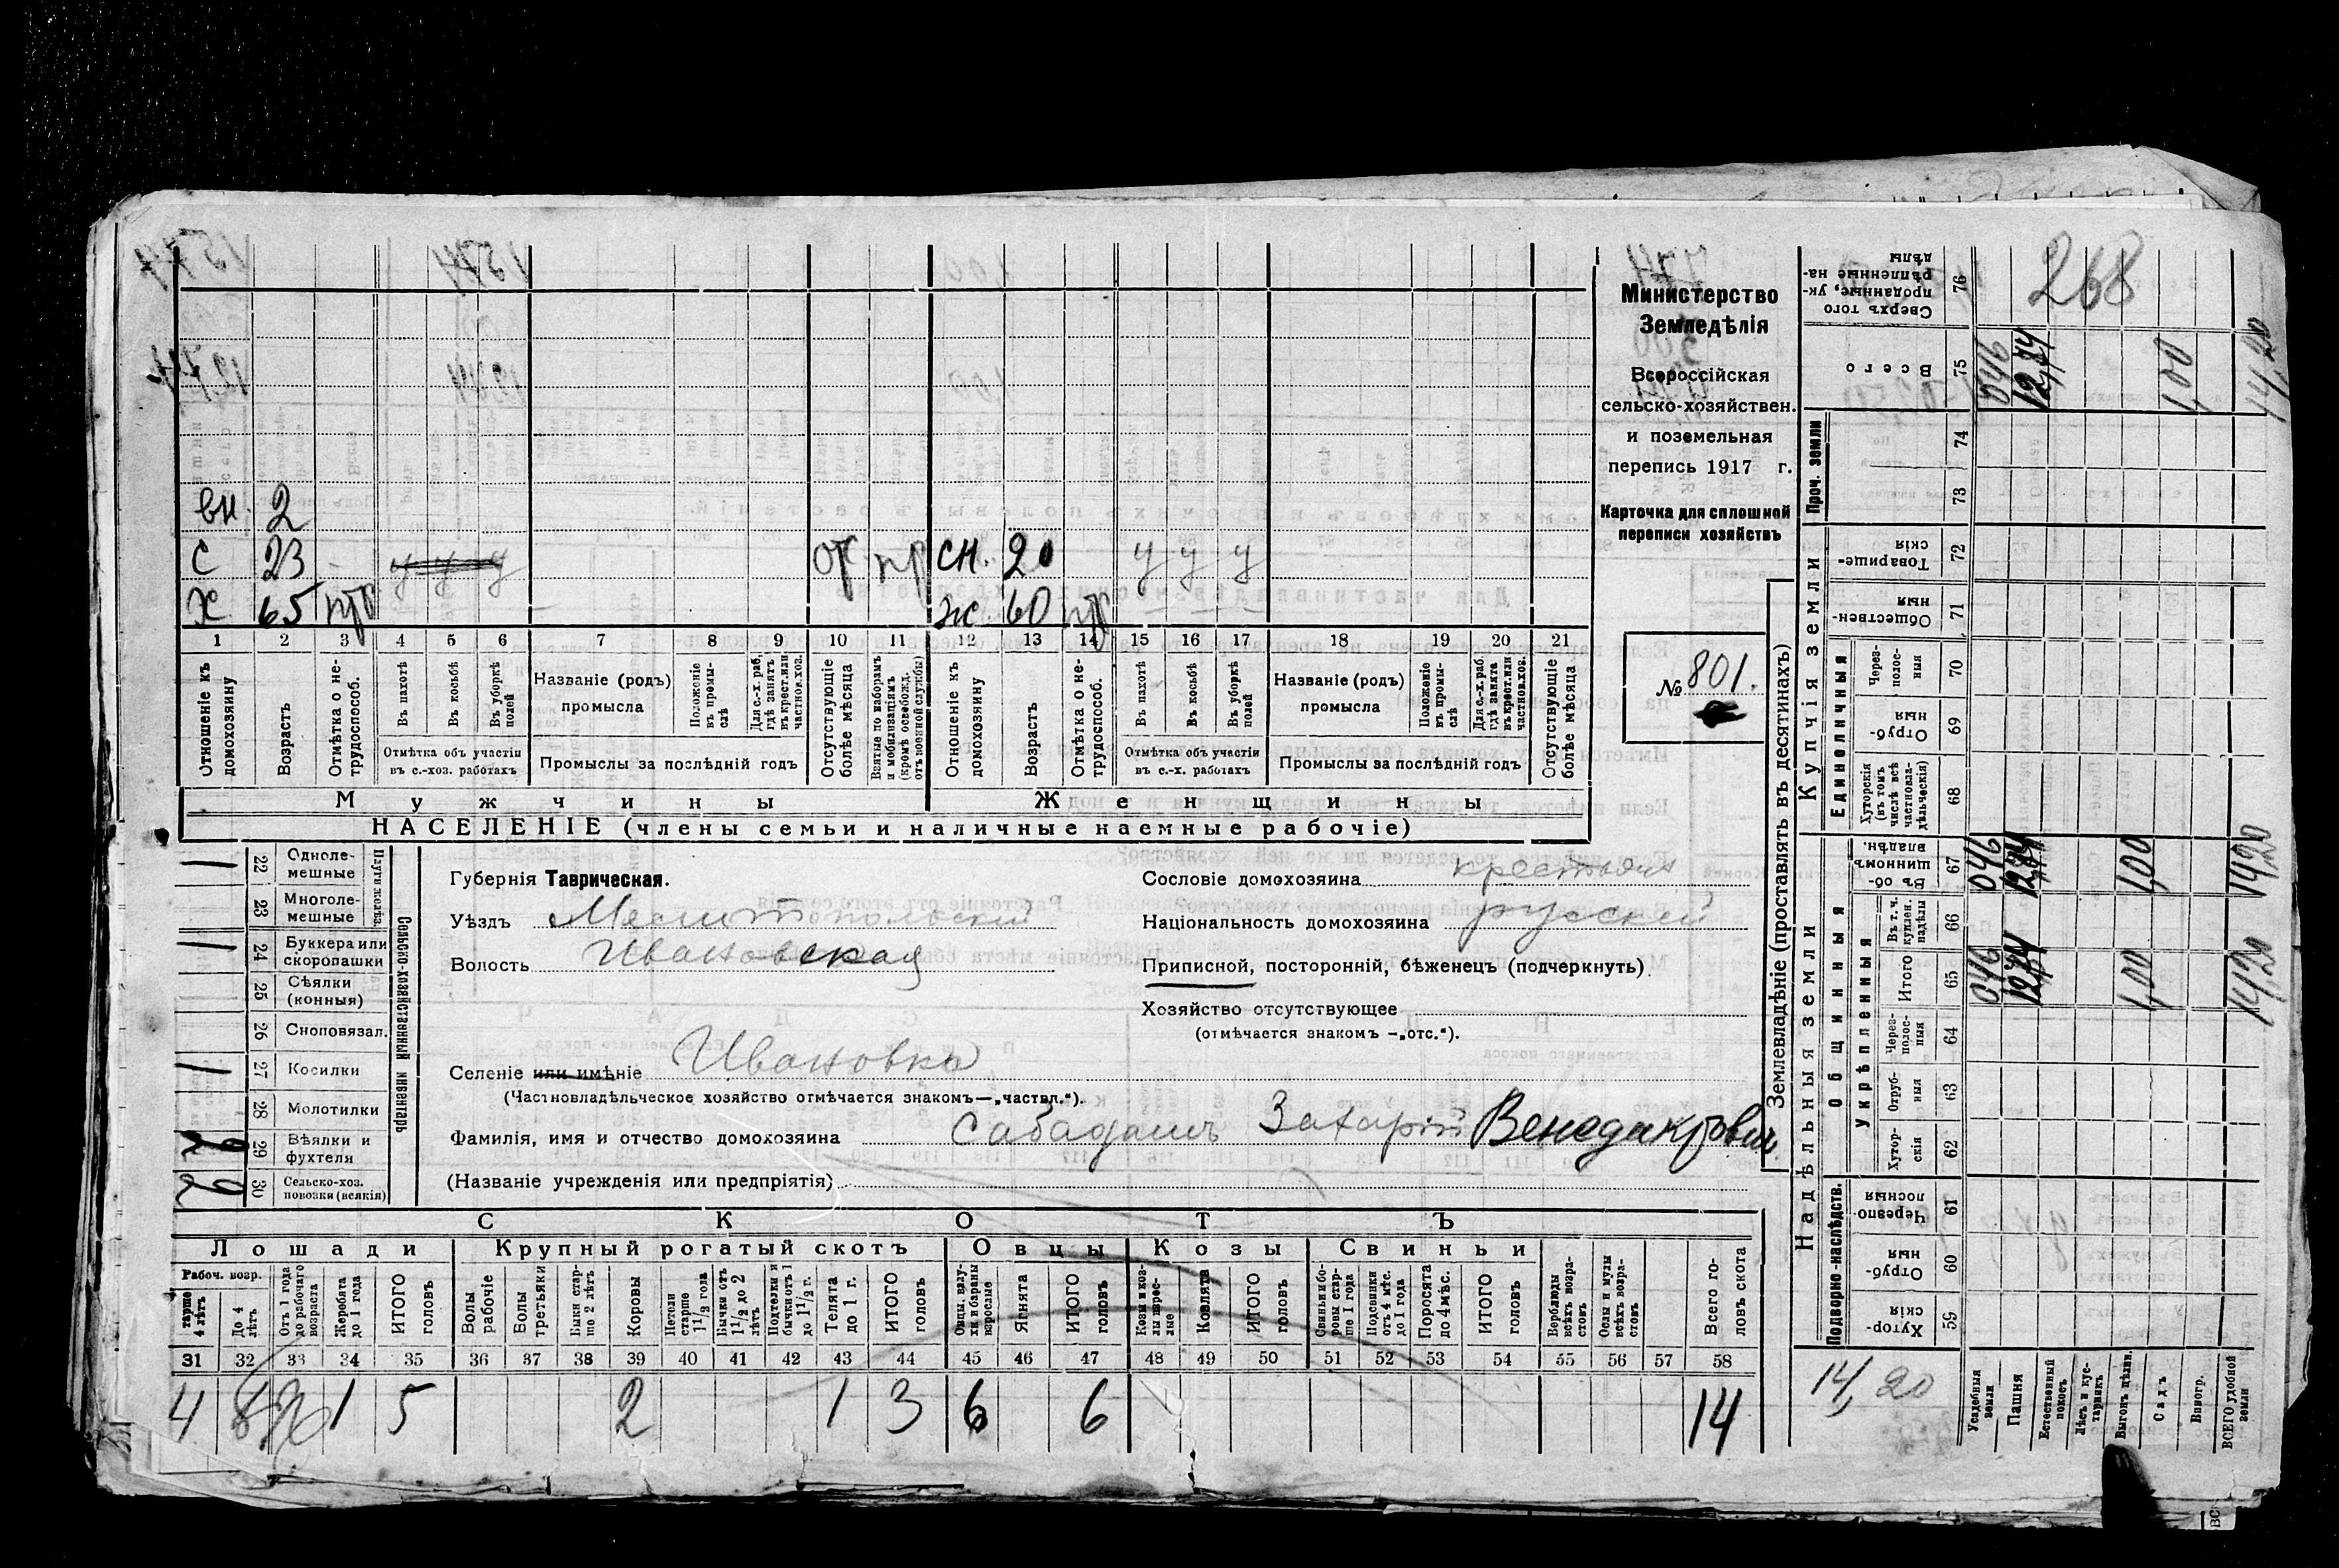 Министерство
Земледѣлія
Всероссійская
сельско-хозяйствен.
и поземельная
перепись 1917 г.
Карточка для сплошной
переписи хозяйствъ
№ 801.
вн. 2
с 23 у у у от пр сн. 20 у у у
х 65 нтр ж. 60 нтр
1 2 3 4 5 6 7 8 9 10 11 12 13 14 15 16 17 18 19 20 21
Отношеніе къ домохозяину
Возрастъ
Отмѣтка о не-трудоспособ.
Въ пахотѣ
Въ косьбѣ
Въ уборкѣ полей
Отмѣтка объ участіи
въ с.-хоз. работахъ
Названіе (родъ)
промысла
Положеніе въ промы-слѣ
Для с.-х. раб. гдѣ занятъ въ крест. или частнов. хоз.
Промыслы за послѣдній годъ
Отсутствующіе болѣе мѣсяца
Взятые по наборамъ и мобилизаціямъ (кромѣ освобожд. отъ военной службы)
Отношеніе къ домохозяину
Возрастъ
Отмѣтка о не-трудоспособ.
Въ пахотѣ
Въ косьбѣ
Въ уборкѣ полей
Отмѣтка объ участіи
въ с.-х. работахъ
Названіе (родъ)
промысла
Положеніе въ промы-слѣ
Для с.-х. раб. гдѣ занята въ крест. или частнов. хоз.
Промыслы за послѣдній годъ
Отсутствующіе болѣе мѣсяца
Мужчины Женщины
НАСЕЛЕНІЕ (члены семьи и наличные наемные рабочіе)
Сельско-хозяйственный инвентарь
1 22 Одноле-мешные
23 Многоле-мешные
1 24 Буккера или скоропашки
25 Сѣялки (конныя)
26 Сноповязал.
1 27 Косилки
28 Молотилки
29 Вѣялки и фухтели
2 30 Сельско-хоз. повозки (всякія)
Губернія Таврическая.
Уѣздъ Мелитопольскій
Волость Ивановская
Селеніе или имѣніе Ивановка
(Частновладѣльческое хозяйство отмѣчается знакомъ—„частвл.“).
Фамилія, имя и отчество домохозяина Сабадашъ Захарій Венедиктовичъ
(Названіе учрежденія или предпріятія)
Сословіе домохозяина крестьян
Національность домохозяина русскій
Приписной, посторонній, бѣженецъ (подчеркнуть)
Хозяйство отсутствующее
(отмѣчается знакомъ —„отс.“).
СКОТЪ
Лошади Крупный рогатый скотъ Овцы Козы Свиньи
Рабоч. возр.
старше 4 лѣтъ
До 4 лѣтъ
Отъ 1 года до рабочаго возраста
Жеребята до 1 года
ИТОГО головъ
Волы рабочіе
Волы третьяки
Быки стар-ше 2 лѣтъ
Коровы
Нетели старше 1 1/2 года
Бычки отъ 1 1/2 до 2 лѣтъ
Подтелки и бычки отъ 1 до 1 1/2 г.
Телята до 1 г.
ИТОГО головъ
Овцы, валу-хи и бараны взрослые
Ягнята
ИТОГО головъ
Козы и коз-лы взрос-лые
Козлята
ИТОГО головъ
Свиньи и бо-ровы стар-ше 1 года
Подсвинки отъ 4 мѣс. до 1 года
Поросята до 4 мѣс.
ИТОГО головъ
Верблюды всѣхъ возра-стовъ
Ослы и мулы всѣхъ возра-стовъ
Всего го-ловъ скота
31 32 33 34 35 36 37 38 39 40 41 42 43 44 45 46 47 48 49 50 51 52 53 54 55 56 57 58
4 1 5 2 1 3 6 6 14
Землевладѣніе (проставлять въ десятинахъ)
Надѣльныя земли
Купчія земли
Проч. земли
Подворно-наслѣдств.
Общинныя
Укрѣпленныя
Единоличныя
Сверхъ того проданные, ук-рѣпленные на-дѣлы 76 268
Всего 75 0,46 12,74 1,00 14,20
74
73
Товарище-скія 72
Обществен-ныя 71
Через-полос-ныя 70
Отруб-ныя 69
Хуторскія (въ томъ числѣ всѣ частновла-дѣльческія) 68
Въ об-щинномъ владѣн. 67 0,46 12,74 1,00 14,20
Въ т. ч. куплен. надѣлы 66
Итого 65 0,46 12,74 1,00 14,20
Через-полос-ныя 64
Отруб-ныя 63
Хутор-скія 62
Черезпо-лосныя 61
Отруб-ныя 60
Хутор-скія 59
14,20
Усадебныя земли
Пашня
Естественный покосъ
Лѣсъ и кус-тарникъ
Выгонъ цѣлин.
Садъ
Виногр.
ВСЕГО удобной земли